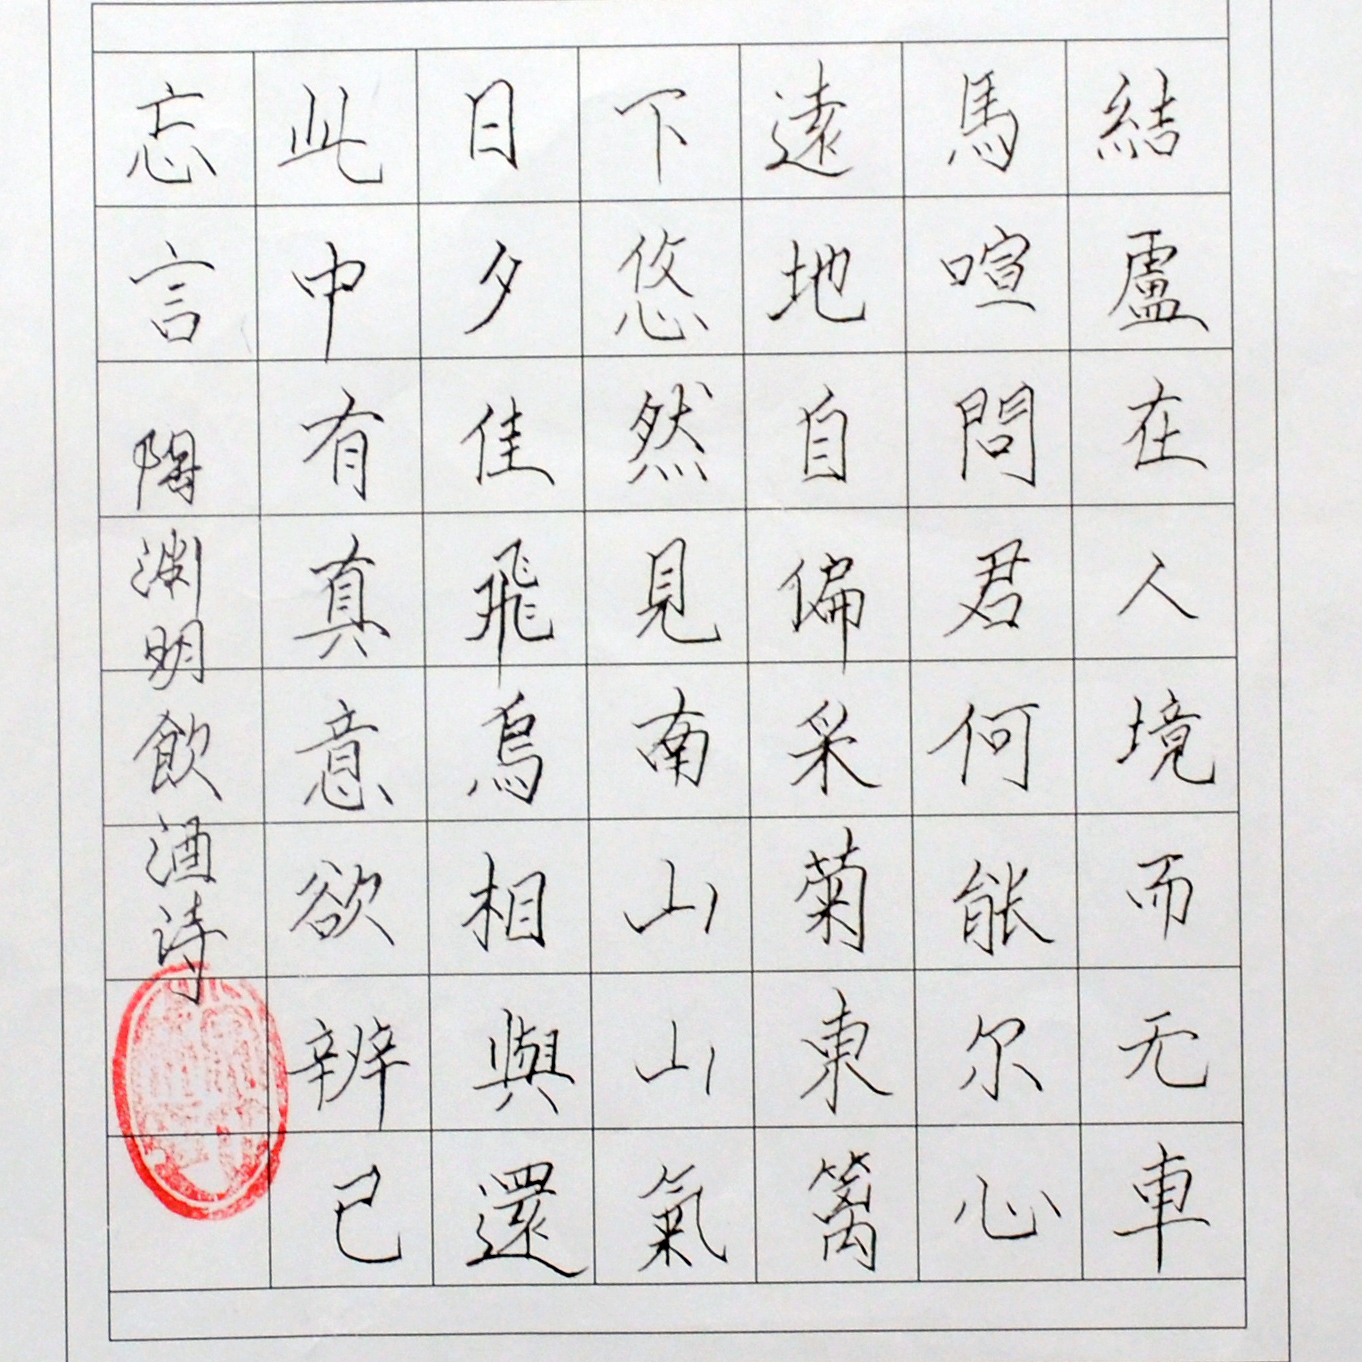 結盧在人境而无車
馬喧問君何能尔心
遠地自偏采菊東篱
下悠然見南山山氣
日夕佳飛鳥相與還
此中有真意欲辨已
忘言 陶淵明飲酒詩